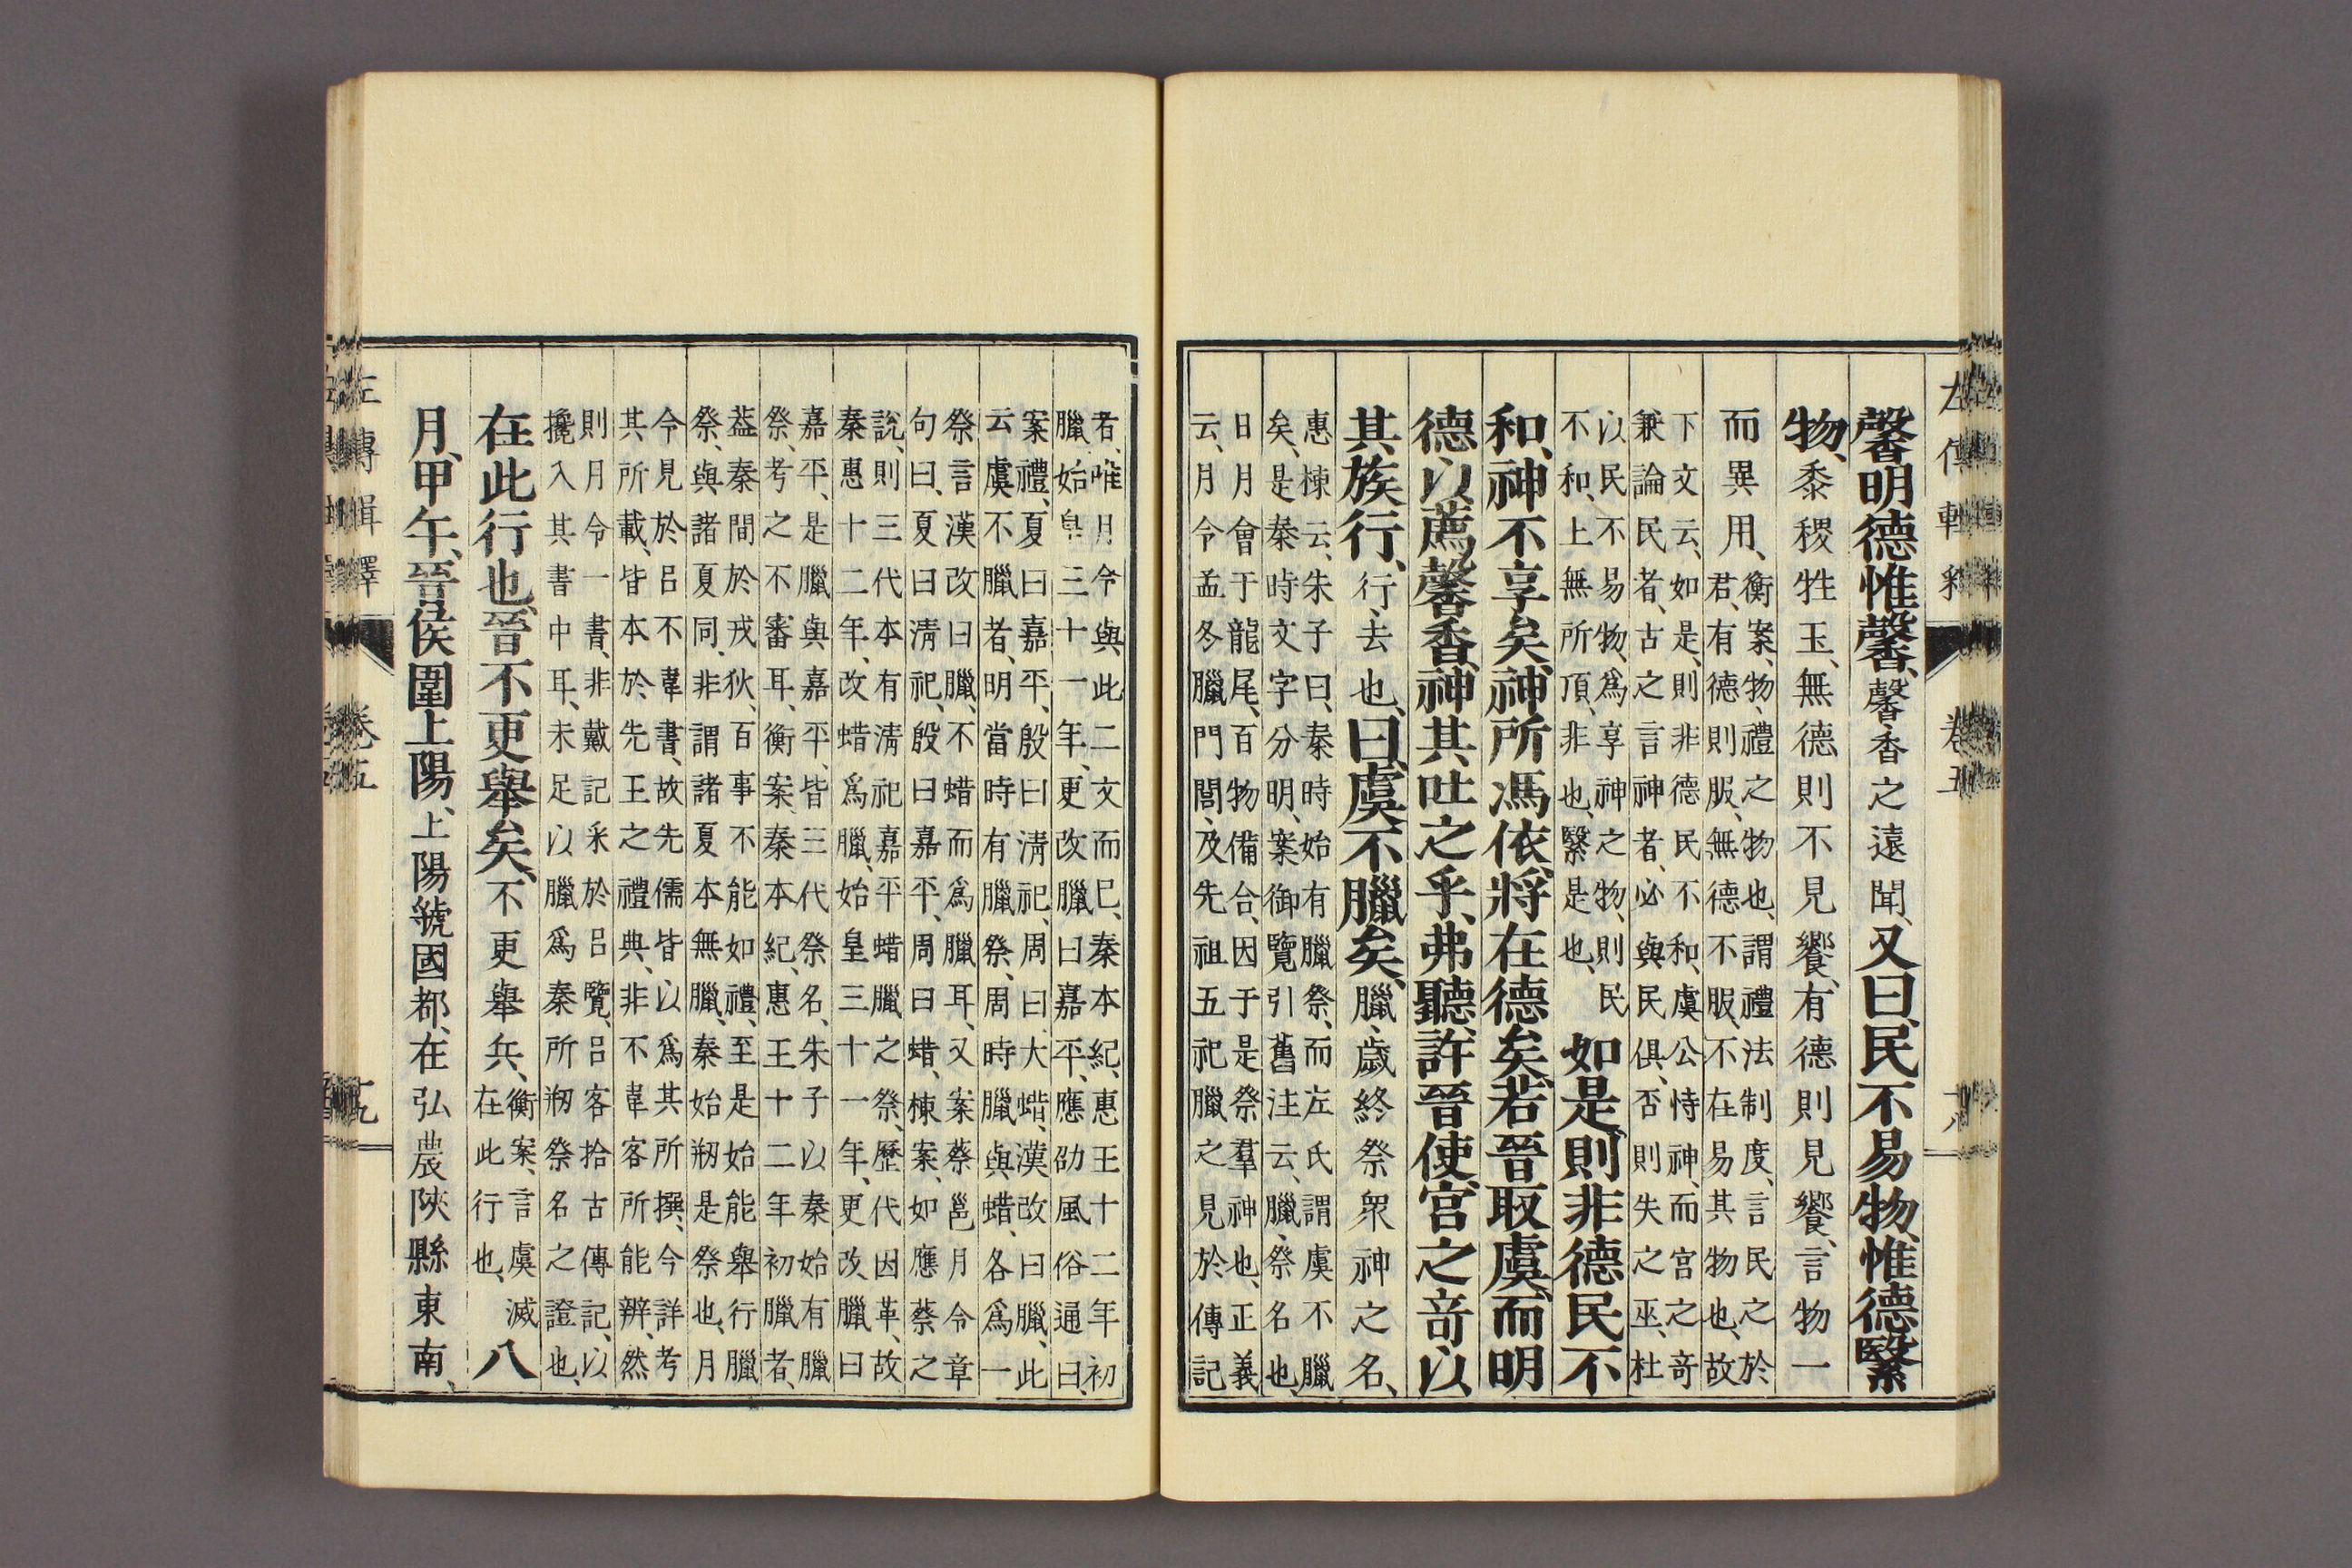 馨明德惟馨、馨香之遠聞、又曰、民不易物、惟德繄
物、黍稷牲玉、無德則不見饗、有德則見饗、言物一
而異用、衡案、物、禮之物也、謂禮法制度、言民之於
君、有德則服、無德不服、不在易其物也、故
下文云、如是、則非德民不和、虞公恃神、而宮之奇
兼論民者、古之言神者、必與民俱、否則失之巫、杜
以民不易物、爲享神之物、則民
不和、上無所頂、非也、繄是也、如是、則非德民不
和、神不享矣、神所馮依、將在德矣、若晉取虞、而明
德以薦馨香、神其吐之乎、弗聽、許晉使、宮之奇以
其族行、行、去也、曰、虞不臘矣、臘、歲終祭眾神之名、
惠棟云、朱子曰、秦時始有臘祭、而左氏謂虞不臘
矣、是秦時文字分明、案御覽引舊注云、臘、祭名也、
日月會于龍尾、百物備合、因于是祭羣神也、正義
云、月令孟冬臘門閭、及先祖五祀、臘之見於傳記
者、唯月令與此二文而已、秦本紀、惠王十二年初
臘、始皇三十一年、更改臘曰嘉平、應劭風俗通曰、
案禮、夏曰嘉平、殷曰淸祀、周曰大蜡、漢改曰臘、此
云虞不臘者、明當時有臘祭、周時臘與蜡、各爲一
祭、言漢改曰臘、不蜡而爲臘耳、又案蔡邕月令章
句曰、夏曰淸祀、殷曰嘉平、周曰蜡、棟案、如應蔡之
說、則三代本有淸祀嘉平蜡臘之祭、歷代因革、故
秦惠十二年、改蜡爲臘、始皇三十一年、更改臘曰
嘉平、是臘與嘉平、皆三代祭名、朱子以秦始有臘
祭、考之不審耳、衡案、秦本紀、惠王十二年初臘者、
葢秦間於戎狄、百事不能如禮、至是始能舉行臘
祭、與諸夏同、非謂諸夏本無臘、秦始刱是祭也、月
令見於呂不韋書、故先儒皆以爲其所撰、今詳考
其所載、皆本於先王之禮典、非不韋客所能辨、然
則月令一書、非戴記采於呂覽、呂客拾古傳記、以
攙入其書中耳、未足以臘爲秦所刱祭名之證也、
在此行也、晉不更舉矣、不更舉兵、衡案、言虞滅在此行也、八
月、甲午、晉侯圍上陽、上陽、虢國都、在弘農陝縣東南、
卷五